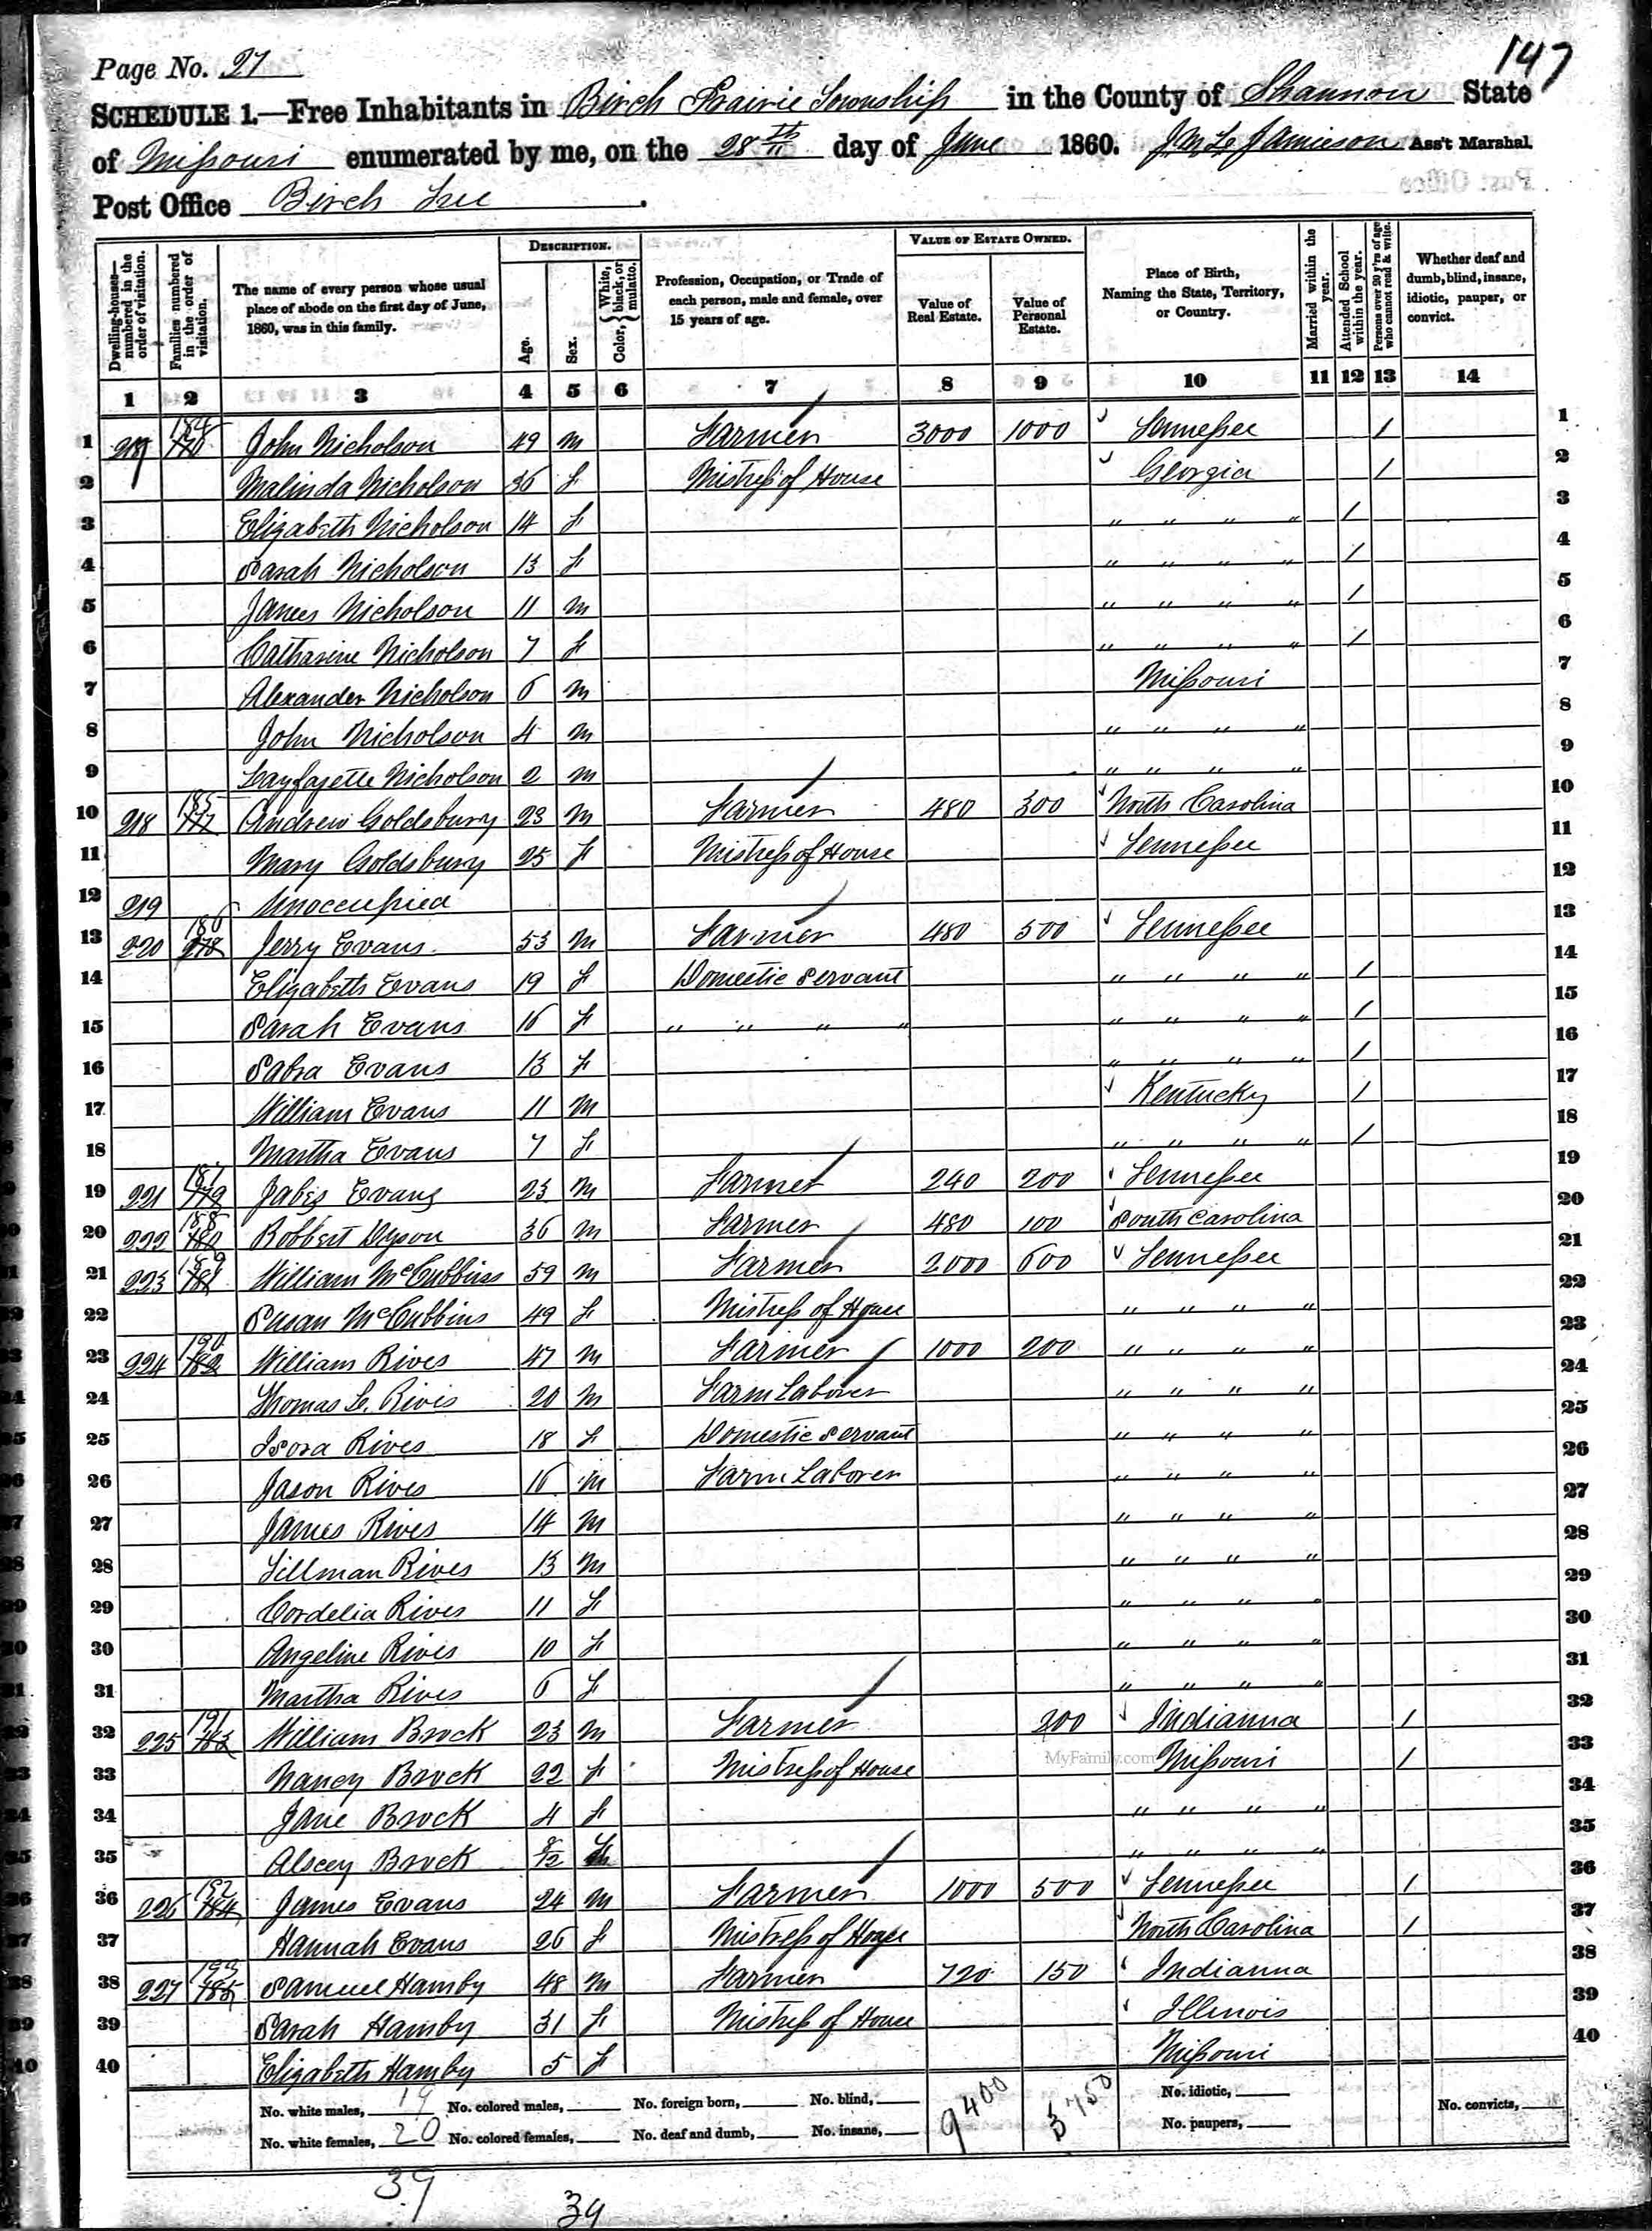 147
Page No. 27
SCHEDULE 1.—Free Inhabitants in Birch Prairie Township in the County of Shannon State
of Missouri enumerated by me, on the 28th day of June 1860. Jamieson Ass't Marshal.
Post Office Birch Tree
Dwelling-houses—numbered in the order of visitation.
Families numbered in the order of visitation.
The name of every person whose usual place of abode on the first day of June, 1860, was in this family.
DESCRIPTION.
Age.
Sex.
Color, {White, black, or mulatto.
Profession, Occupation, or Trade of each person, male and female, over 15 years of age.
VALUE OF ESTATE OWNED.
Value of Real Estate.
Value of Personal Estate.
Place of Birth, Naming the State, Territory, or Country.
Married within the year.
Attended School within the year.
Persons over 20 y'rs of age who cannot read & write.
Whether deaf and dumb, blind, insane, idiotic, pauper, or convict.
1 2 3 4 5 6 7 8 9 10 11 12 13 14
1 217 184 John Nicholson 49 m Farmer 3000 1000 Tennessee / 1
2 Malinda Nicholson 36 f Mistress of House Georgia / 2
3 Elizabeth Nicholson 14 f " " " " / 3
4 Sarah Nicholson 13 f " " " " / 4
5 James Nicholson 11 m " " " " / 5
6 Catharine Nicholson 7 f " " " " / 6
7 Alexander Nicholson 6 m Missouri 7
8 John Nicholson 4 m " " " " 8
9 Layfayette Nicholson 2 m " " " " 9
10 218 185 177 Andrew Goldsbury 23 m Farmer 480 300 North Carolina 10
11 Mary Goldsbury 25 f Mistress of House Tennessee 11
12 219 Unoccupied 12
13 220 186 278 Jerry Evans 53 m Farmer 480 500 Tennessee 13
14 Elizabeth Evans 19 f Domestic Servant " " " " / 14
15 Sarah Evans 16 f " " " " " " " " / 15
16 Sabra Evans 13 f " " " " / 16
17 William Evans 11 m Kentucky / 17
18 Martha Evans 7 f " " " " / 18
19 221 187 179 Jabez Evans 23 m Farmer 240 200 Tennessee 19
20 222 188 180 Robbert Dyson 36 m Farmer 480 100 South Carolina 20
21 223 189 181 William McCubbins 59 m Farmer 2000 600 Tennessee 21
22 Susan McCubbins 49 f Mistress of House " " " " 22
23 224 190 182 William Rives 47 m Farmer 1000 200 " " " " 23
24 Thomas L. Rives 20 m Farm Laborer " " " " 24
25 Isora Rives 18 f Domestic Servant " " " " 25
26 Jason Rives 16 m Farm Laborer " " " " 26
27 James Rives 14 m " " " " 27
28 Tillman Rives 13 m " " " " 28
29 Cordelia Rives 11 f " " " " 29
30 Angeline Rives 10 f " " " " 30
31 Martha Rives 6 f " " " " 31
32 225 191 183 William Brock 23 m Farmer 200 Indianna / 32
33 Nancy Brock 22 f Mistress of House MyFamily.com Missouri / 33
34 Jane Brock 4 f " " " " 34
35 Alscey Brock 8/12 f " " " " 35
36 226 192 184 James Evans 24 m Farmer 1000 500 Tennessee / 36
37 Hannah Evans 26 f Mistress of House North Carolina / 37
38 227 193 185 Samuel Hamby 48 m Farmer 720 150 Indianna 38
39 Sarah Hamby 31 f Mistress of House Illinois 39
40 Elizabeth Hamby 5 f Missouri 40
No. white males, 19 No. colored males, No. foreign born, No. blind, 9400 3750 No. idiotic, No. convicts,
No. white females, 20 No. colored females, No. deaf and dumb, No. insane, No. paupers,
39
39